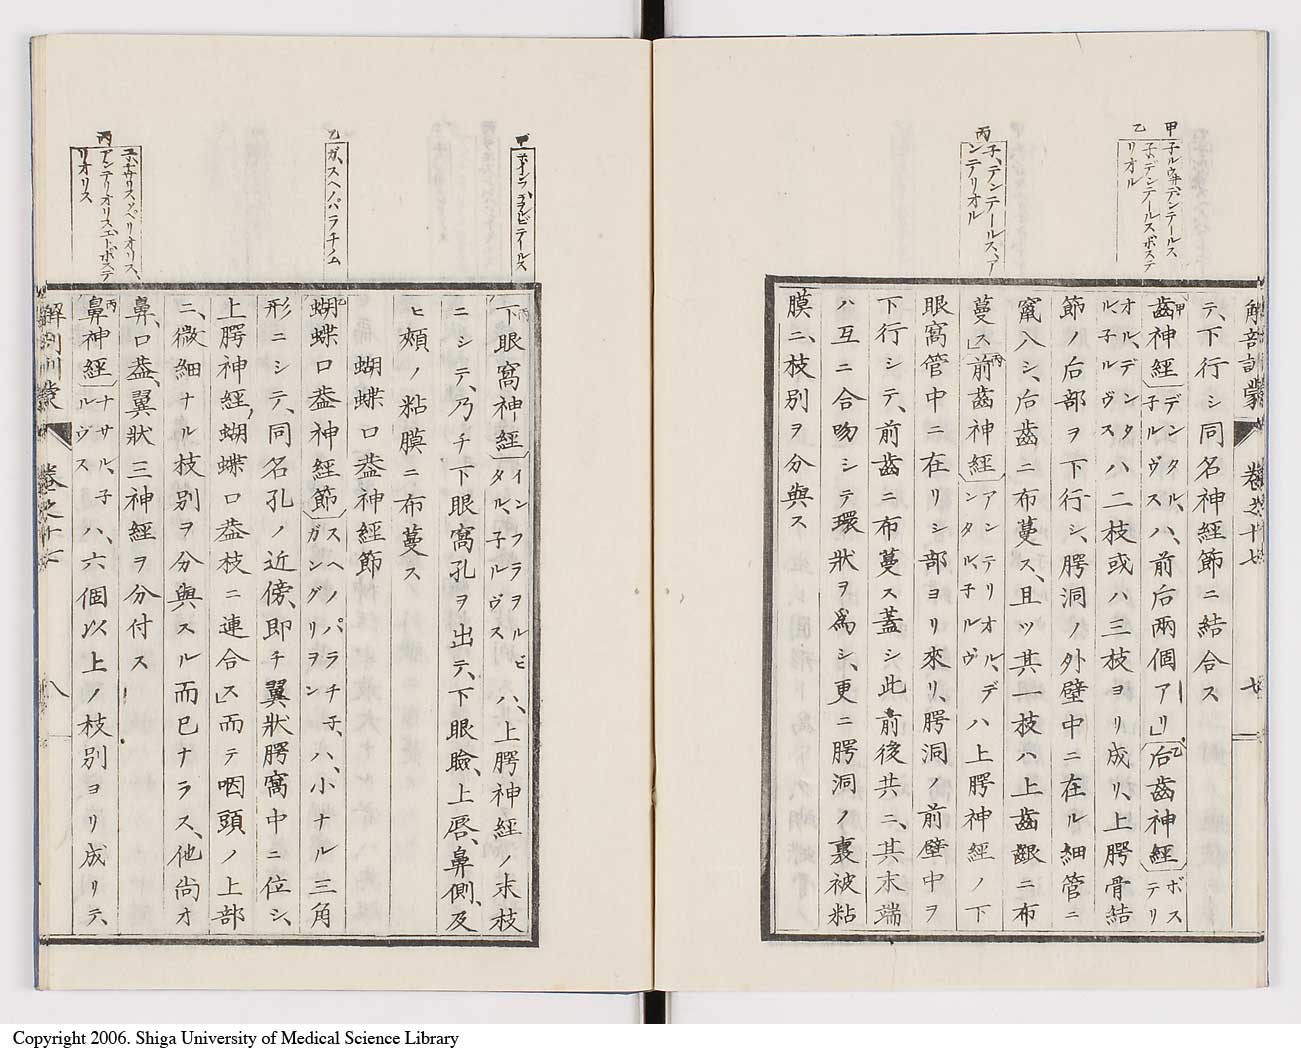 甲
子ルウ井デンテールス
乙
子ルデンテールスポステ
リオル
丙
子、デンテールス、ア
ンテリオル
解剖訓蒙
卷之十七
七
テ、下行シ同名神經節ニ結合ス
齒神經デンタル、子ルヴスハ、前后兩個アリ」后齒神經ポステリ
オル、デンタル、子ルヴスハ二枝或ハ三枝ヨリ成リ、上腭骨結
節ノ后部ヲ下行シ、腭洞ノ外壁中ニ在ル細管ニ
竄入シ、后齒ニ布蔓ス、且ツ其一枝ハ上齒齦ニ布
蔓ス」前齒神經アンテリオル、デンタル、子ルヴハ上腭神經ノ下
眼窩管中ニ在リシ部ヨリ來リ、腭洞ノ前壁中ヲ
下行シテ、前齒ニ布蔓ス蓋シ此前後共ニ、其末端
ハ互ニ合吻シテ環狀ヲ爲シ、更ニ腭洞ノ裏被粘
膜ニ、枝別ヲ分與ス
甲
乙
ガ、スヘノパラチノム
丙
アンテリオリスエトポステ
リオリス
下眼窩神經インフラヲルビタル、子ルヴスハ、上腭神經ノ末枝
ニシテ、乃チ下眼窩孔ヲ出テ、下眼瞼、上唇、鼻側、及
ヒ頰ノ粘膜ニ布蔓ス
蝴蝶口葢神經節
蝴蝶口葢神經節スヘノパラチ子、ガングリヲンハ、小ナル三角
形ニシテ、同名孔ノ近傍、即チ翼狀腭窩中ニ位シ、
上腭神經、蝴蝶口葢枝ニ連合ス」而テ咽頭ノ上部
ニ、微細ナル枝別ヲ分與スル而已ナラス、他尚オ
鼻、口葢、翼狀三神經ヲ分付ス
鼻神經ナサル、子ルヴスハ、六個以上ノ枝別ヨリ成リテ、
解剖訓蒙
卷之十七
八
Copyright 2006. Shiga University of Medical Science Library